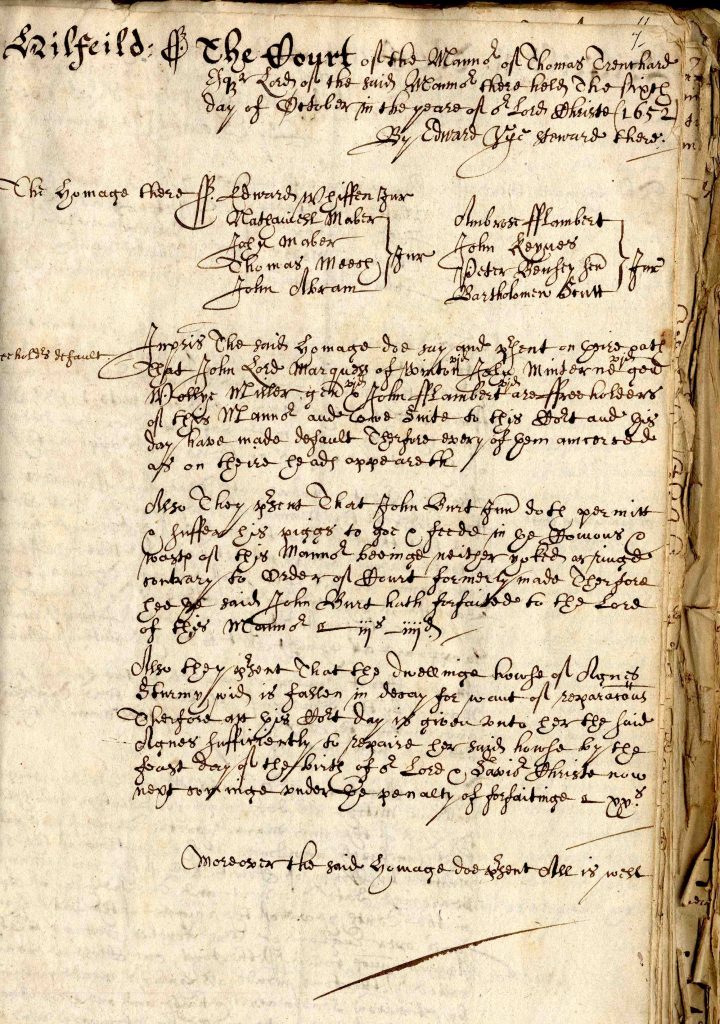 Wilfeild: ss The Court of the Manno^r of Thomas Trenchard
Esq^r Lord of the said Manno^r there held The sixth
day of October in the yeare of o^r Lord Christe (1652)
By Edward steward there.
The Homage there ss. Edward Whiffen Jur
Nathaniell Maber
John Maber
Thomas Meech
John Abram
Jur
Ambrose fflambert
John Keynes
Peter Hensey sen
Bartholomew Scutt
Jur
default
Inpris The said Homage doe say and p^rsent on theire oath
That John Lord Marquess of Winton John Minterne gen
Miller gen & John fflambert are ffreeholders
of this Manno^r and owe Suite to this Co^rt and this
day have made default Therfore every of them amerced
as on theire heads appeareth
Also They p^rsent That John Burt Jun doth permitt
& suffer his piggs to goe & feede in the Comons &
wast of this Manno^r beeinge neither yoked or ringed
contrary to Order of Court formerly made Therfore
hee the said John Burt hath forfaited to the Lord
of this Manno^r iij^s iiij^d
Also they p^rsent That the dwellinge howse of Agnes
Sturmy wid is fallen in decay for want of reparacous
Therfore att this Co^rt day is given unto her the said
Agnes sufficiently to repaire her said howse by the
feast day of the birth of o^r Lord & Savio^r Christe now
next cominge under the penalty of forfaitinge xx^s
Moreover the said Homage doe p^rsent All is well